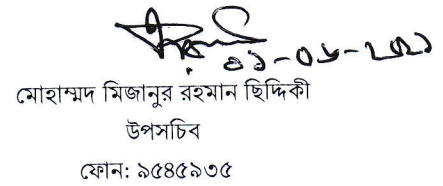 ০১-০৬-২০২১
মোহাম্মদ মিজানুর রহমান ছিদ্দিকী
উপসচিব
ফোন: ৯৫৪৫৯৩৫